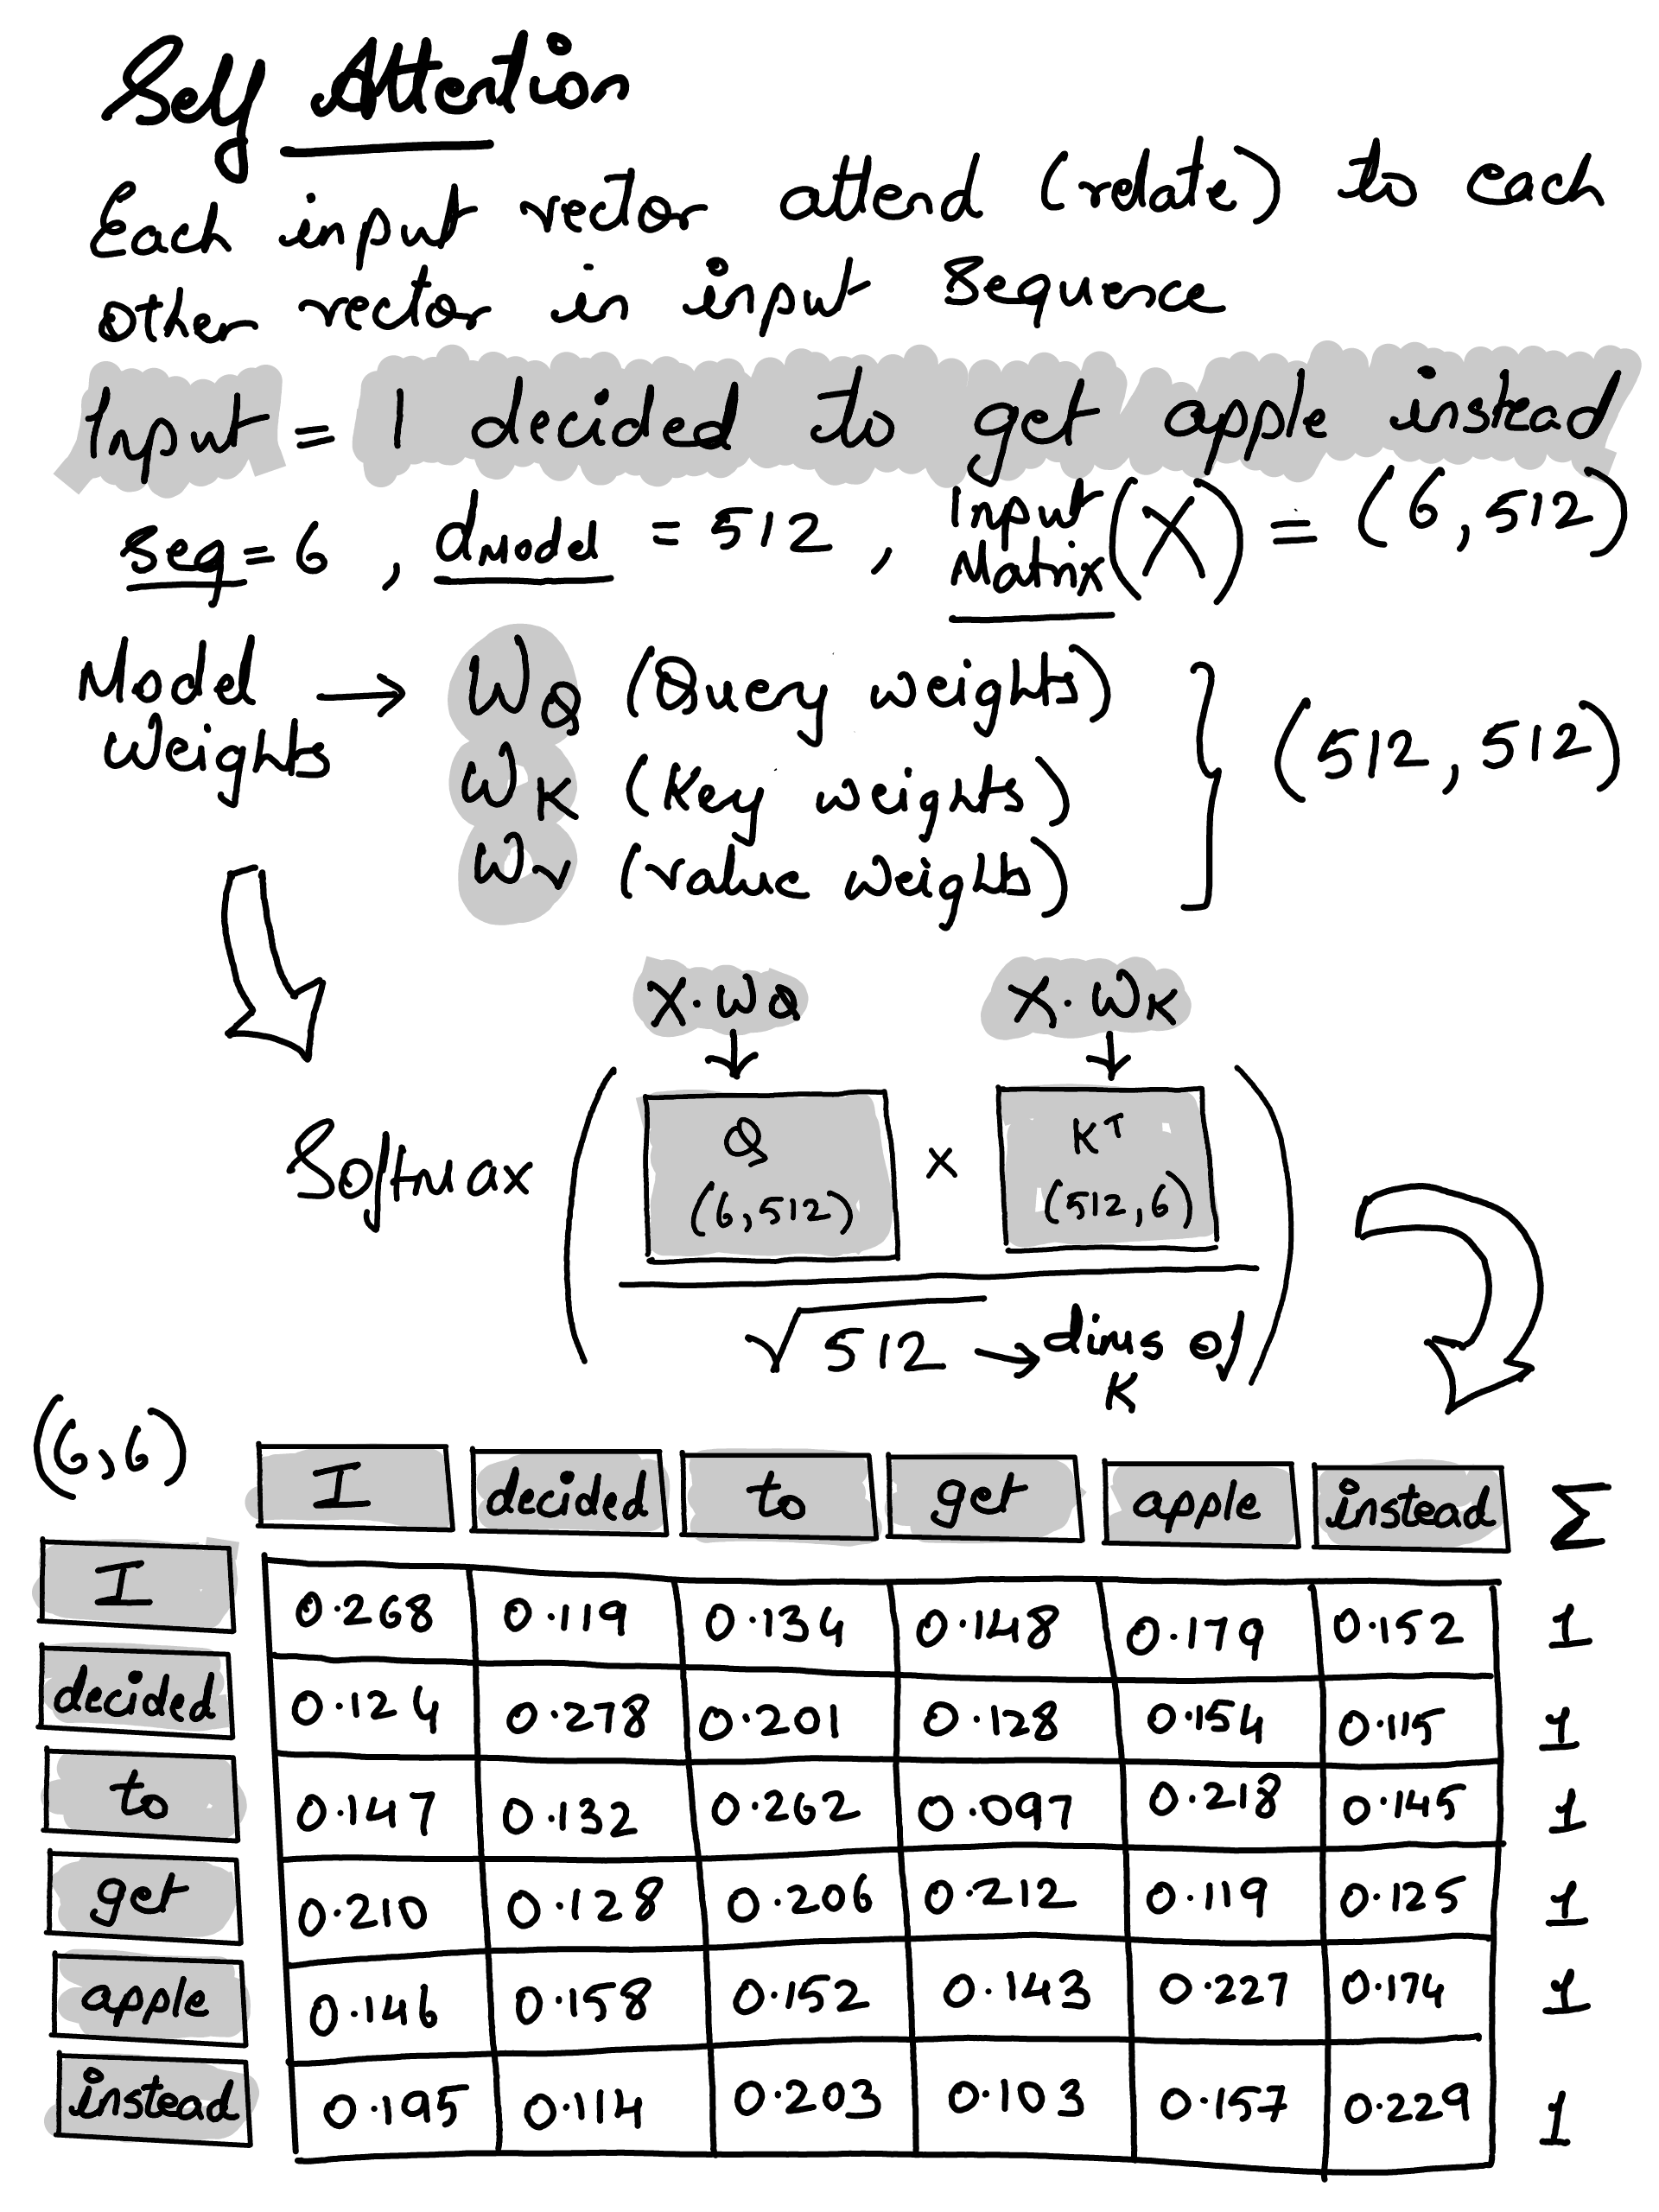 Self Attention
Each input vector attend (relate) to each
other vector in input Sequence
Input = I decided to get apple instead
seq = 6 , dModel = 512 , Input Matrix (X) = (6,512)
Model Weights → WQ (Query weights)
WK (Key weights)
WV (value weights)
} (512,512)
X·WQ X·WK
↓ ↓
Softmax ( Q (6,512) × K^T (512,6) )
√512 → dims of K
(6,6)
I decided to get apple instead Σ
I 0.268 0.119 0.134 0.148 0.179 0.152 1
decided 0.124 0.278 0.201 0.128 0.154 0.115 1
to 0.147 0.132 0.262 0.097 0.218 0.145 1
get 0.210 0.128 0.206 0.212 0.119 0.125 1
apple 0.146 0.158 0.152 0.143 0.227 0.174 1
instead 0.195 0.114 0.203 0.103 0.157 0.229 1